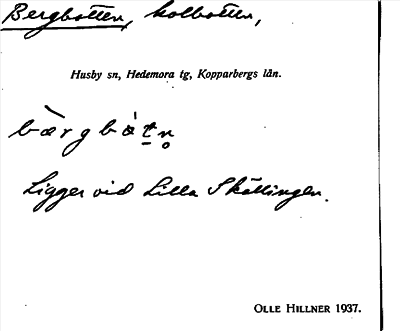 Bergbotten, kolbotten,
Husby sn, Hedemora tg, Kopparbergs län.
bæ̀rgbòtn̥
Ligger vid Lilla Skällingen.
OLLE HILLNER 1937.